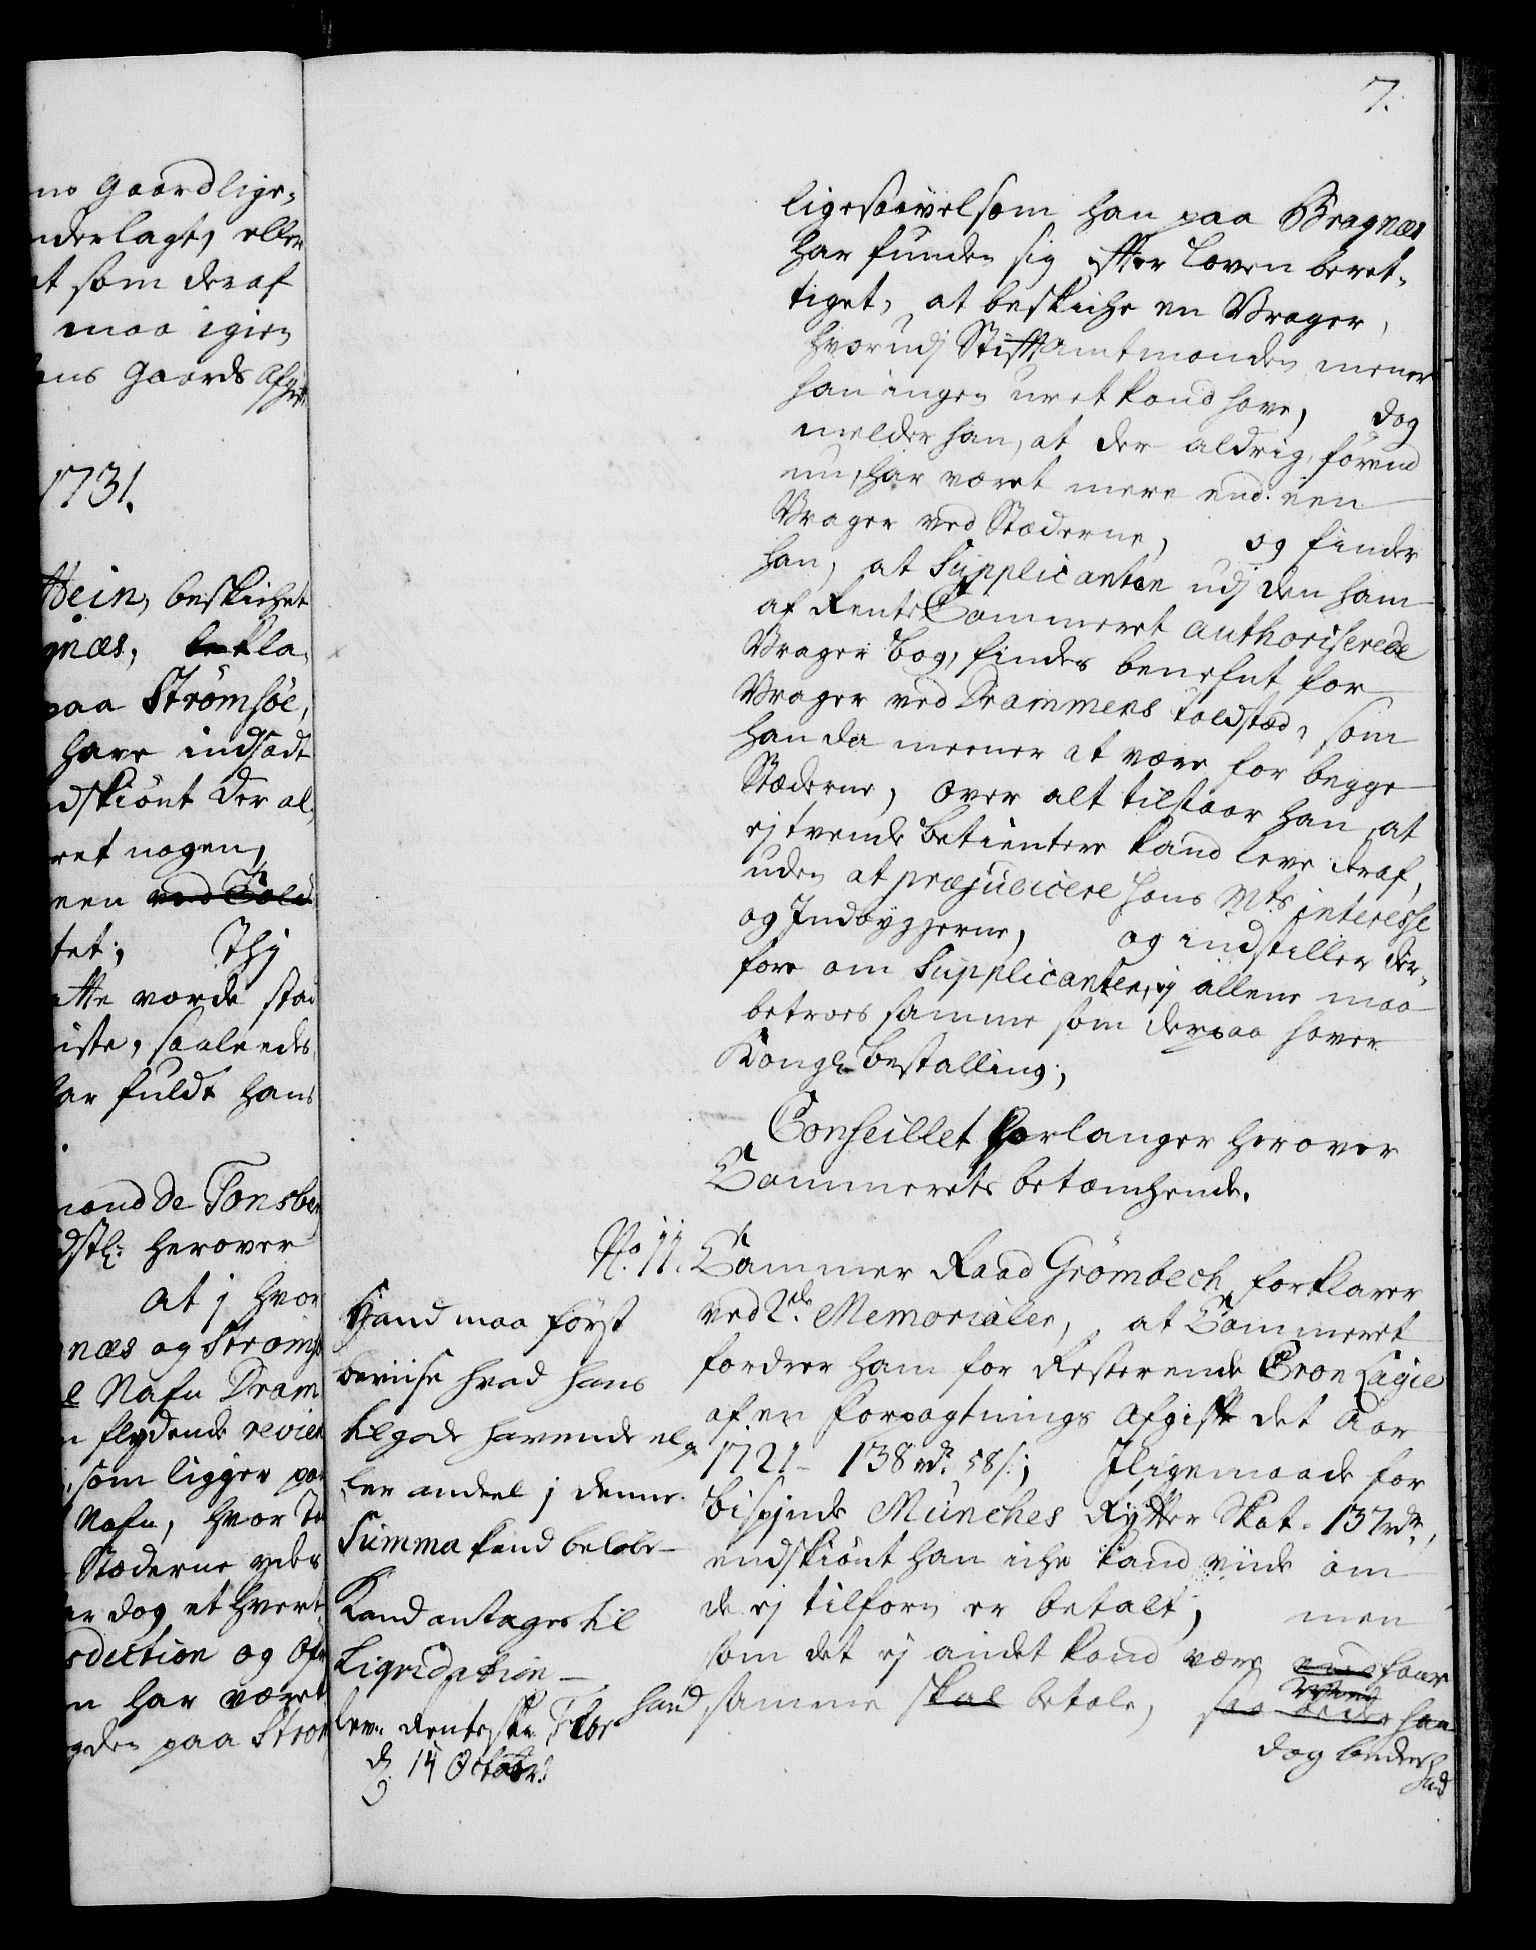 7.
no Gaardlige-
nderlagt, eller
at som deraf
maa igien
hans Gaards Afgift
1731.
Hein, beskichet
gnæs, bekla-
paa Strømsøe,
have indsadt
dskiønt der al-
ret nogen,
een ved Told
tet; Thj
atte vorde stai
iste, saaleedes
har fuldt hans
mand de Tonsber
dstl: herover
at j hvor
næs og Strøms
e Nafn Dram
n flydende revier
, som ligger paa
Nafn, hvor To
Stæderne ydes
er dog et hvert
sdiction og Ofr
n har været
gden paa Strøm
ligesaavelsom han paa Bragnæs
har funden sig efter Loven beret-
tiget, at beskiche en Vrager,
hvorudj Stiftamtmanden mener
han ingen uret kand have, dog
melder han, at der aldrig, førend
nu, har været mere end een
Vrager ved Stæderne, og finder
han, at Supplicanten udj den ham
af RenteCammeret authoriserede
Vrager Bog, findes benefnt for
Vrager ved Drammens toldstæd, som
han da meener at være for begge
Stæderne, over alt tilstaar han, at
ej tvende betientere kand leve deraf,
uden at præjudicere Hans Mts interesse
og Indbyggerne, og indstiller der-
fore om Supplicanten, ej allene maa
betroes samme som derpaa haver
Kongl. bestalling;
Conseillet forlanger herover
Cammerets betænchende.
No. 11. Cammer Raad Grømbech forklarer
ved 2de Memorialer, at Cammeret
fordrer ham for Resterende Cron Lagie
af en Forpagtnings Afgift det Aar
1721 – 138 rd. 58 s.; Iligemaade for
bispinde Münches Rytter Skat. 137 rdr,
endskiønt han iche kand viide om
de ej tilforn er betalt, men
som det ej andet kand være end haar
hand samme skal betale, saa beder han
dog beder
hand
Hand maa først
beviise hvad hans
tilgode havende el-
ler andeel j denne
Summa kand beløbe –
Kand antages til
Liqvidation –
lev. Rentesk: Flor
d. 14 Octobr.